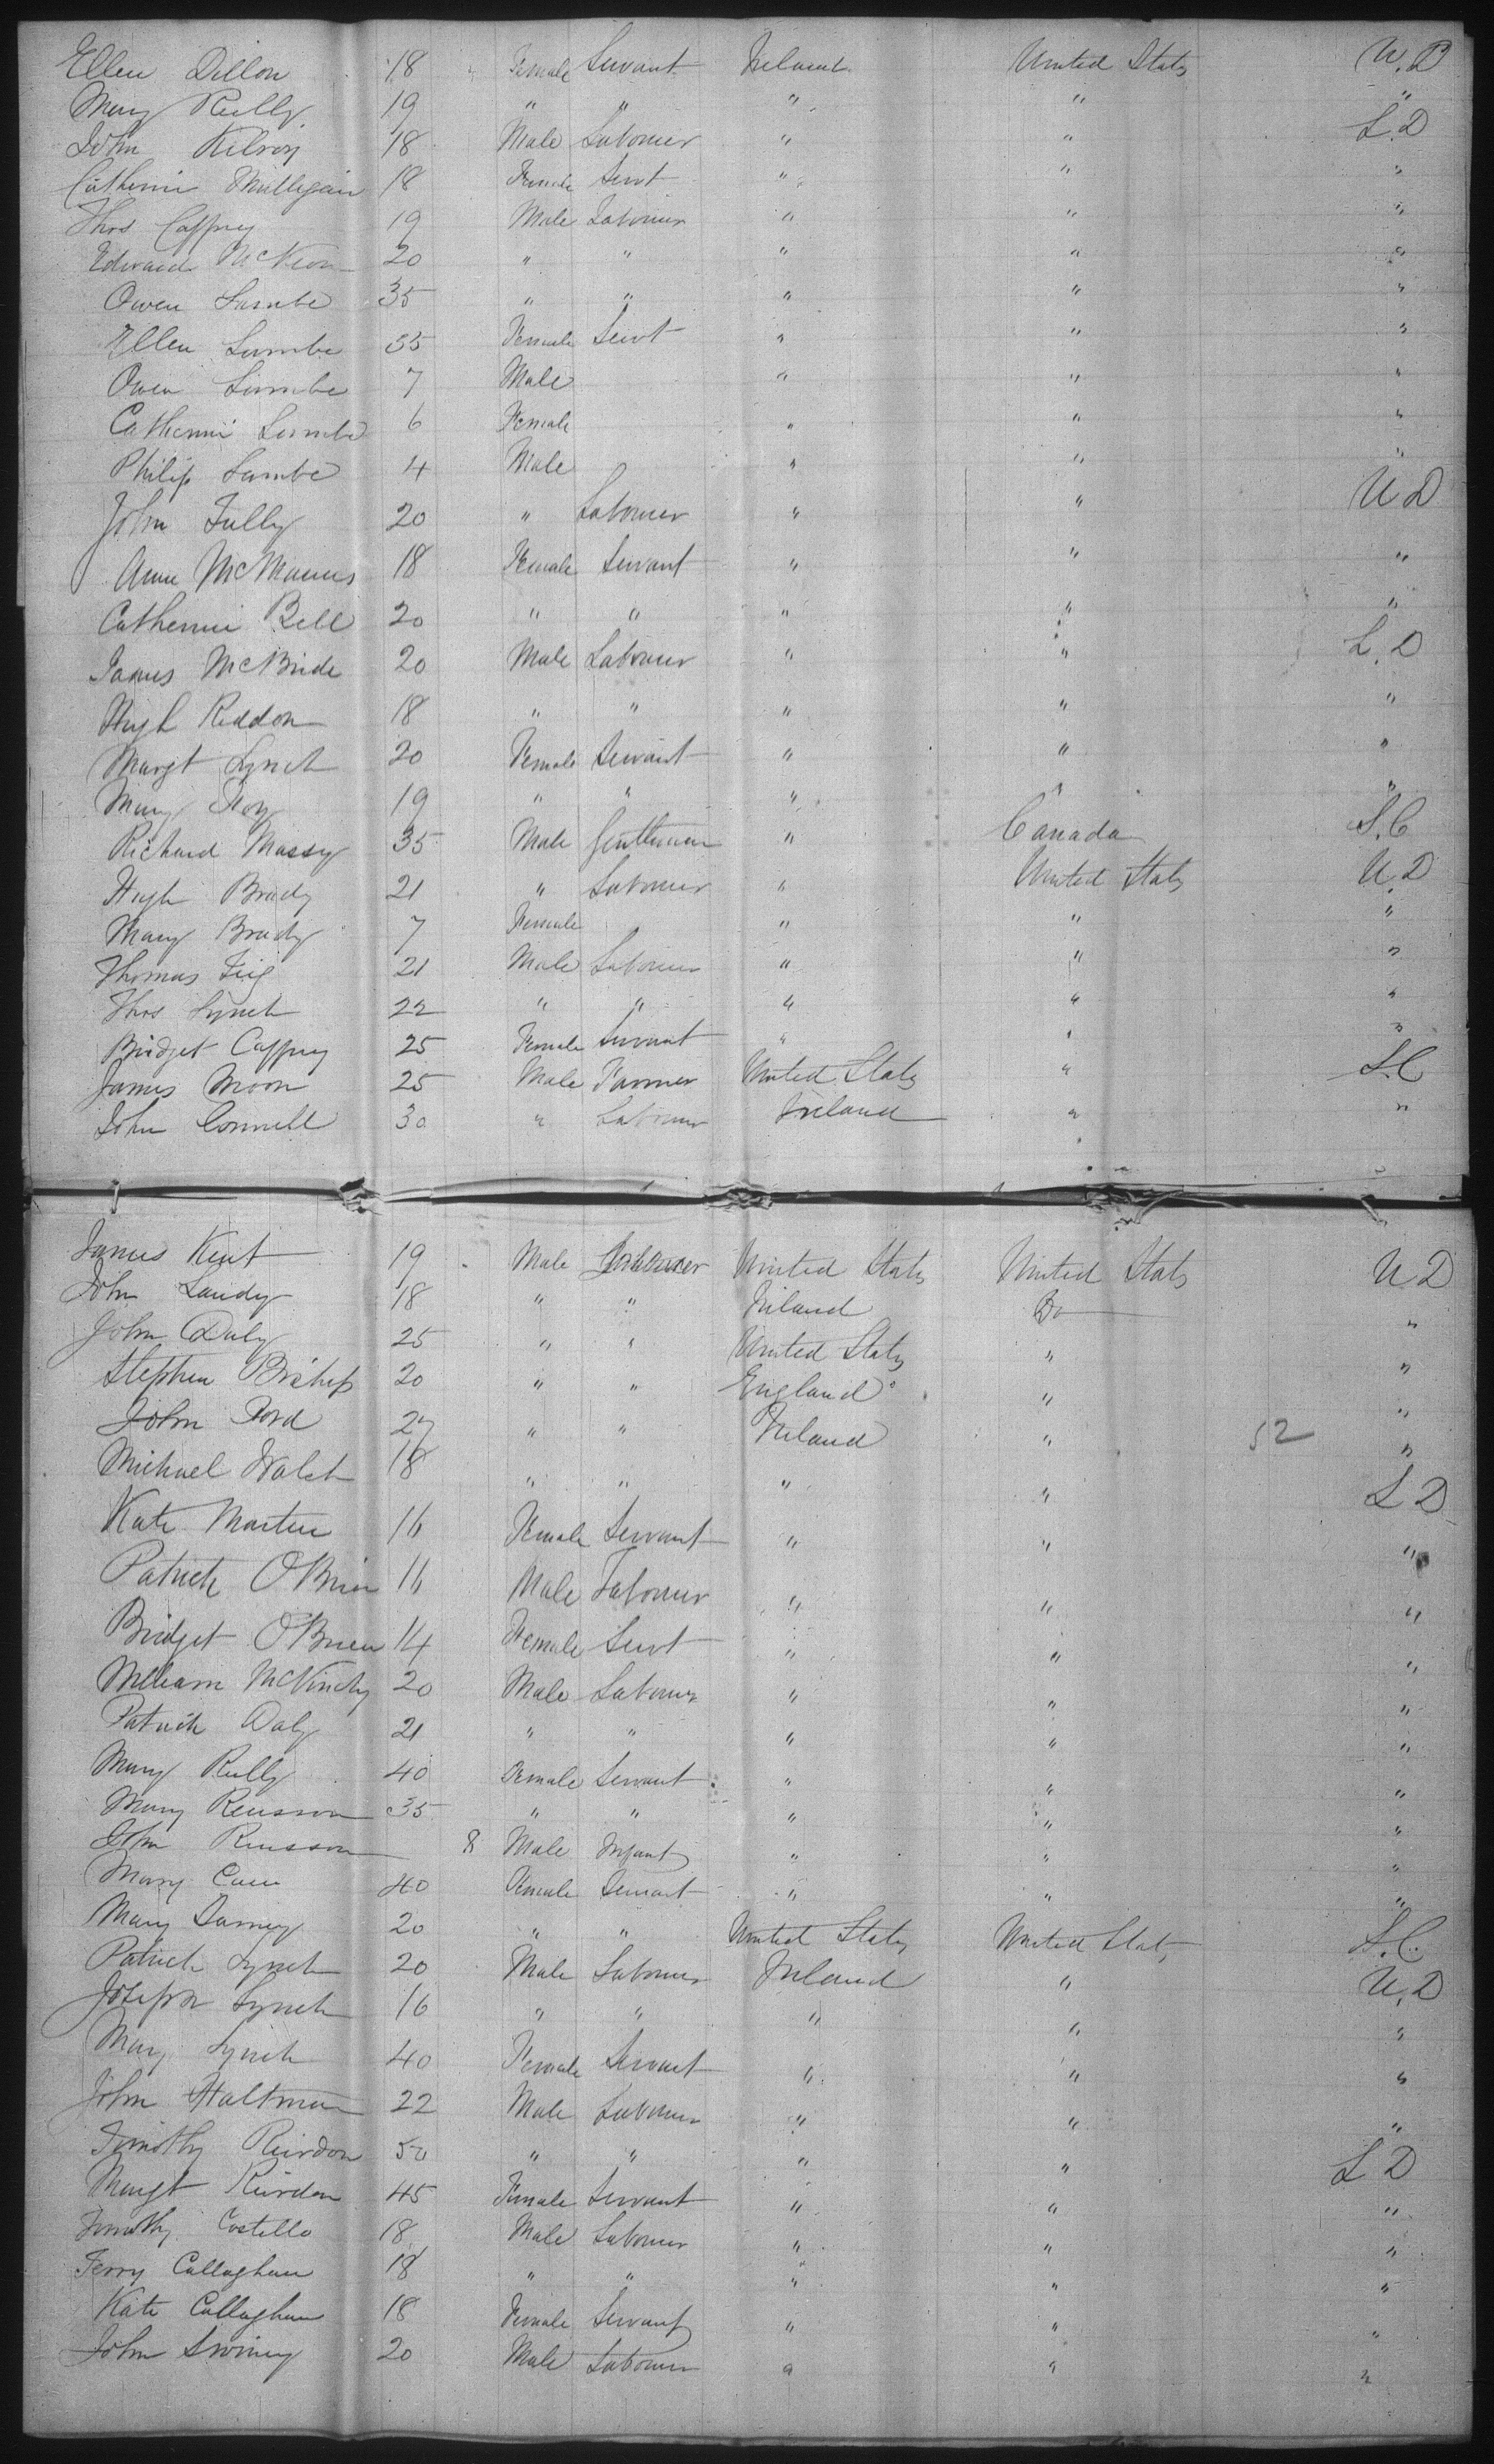 Ellen Dillon 18 Female Servant Ireland United States U.D
Mary Reilly 19 " " " " "
John Kilroy 18 Male Labourer " " L.D
Catherine Mulligan 18 Female Servt " " "
Thos Caffrey 19 Male Labourer " " "
Edward McKeon 20 " " " " "
Owen Lambe 35 " " " " "
Ellen Lambe 35 Female Servt " " "
Owen Lambe 7 Male " " "
Catherine Lambe 6 Female " " "
Philip Lambe 4 Male " " "
John Tully 20 " Labourer " " U D
Anne McManus 18 Female Servant " " "
Catherine Bell 20 " " " " "
James McBride 20 Male Labourer " " L.D
Hugh Reddon 18 " " " " "
Margt Lynch 20 Female Servant " " "
Mary 19 " " " " "
Richard Massy 35 Male Gentleman " Canada S.C
Hugh Brady 21 " Labourer " United States U.D
Mary Brady 7 Female " " "
Thomas 21 Male Labourer " " "
Thos Lynch 22 " " " " "
Bridget Caffrey 25 Female Servant " " "
James Moon 25 Male Farmer United States " S.C
John Connell 30 " Labourer Ireland " "
James Kent 19 Male Labourer United States United States U D
John Landy 18 " " Ireland Do "
John Daly 25 " " United States " "
Stephen Bishop 20 " " England " "
John Ford 27 " " Ireland " 52 "
Michael Walsh 18 " " " " L D
Kate Martin 16 Female Servant " " "
Patrick OBrien 16 Male Labourer " " "
Bridget OBrien 14 Female Servt " " "
William McKinchy 20 Male Labourer " " "
Patrick Daly 21 " " " " "
Mary Reilly 40 Female Servant " " "
Mary Reusson 35 " " " " "
John Reusson 8 Male Infant " " "
Mary 40 Female Servant " " "
Mary 20 " " United States United States S.C.
Patrick Lynch 20 Male Labourer Ireland " U.D
Joseph Lynch 16 " " " " "
Mary Lynch 40 Female Servant " " "
John Haltman 22 Male Labourer " " "
Timothy Reirdon 50 " " " " L D
Margt Reirdon 45 Female Servant " " "
Timothy Costello 18 Male Labourer " " "
Jerry Callaghan 18 " " " " "
Kate Callaghan 18 Female Servant " " "
John Swiney 20 Male Labourer " " "